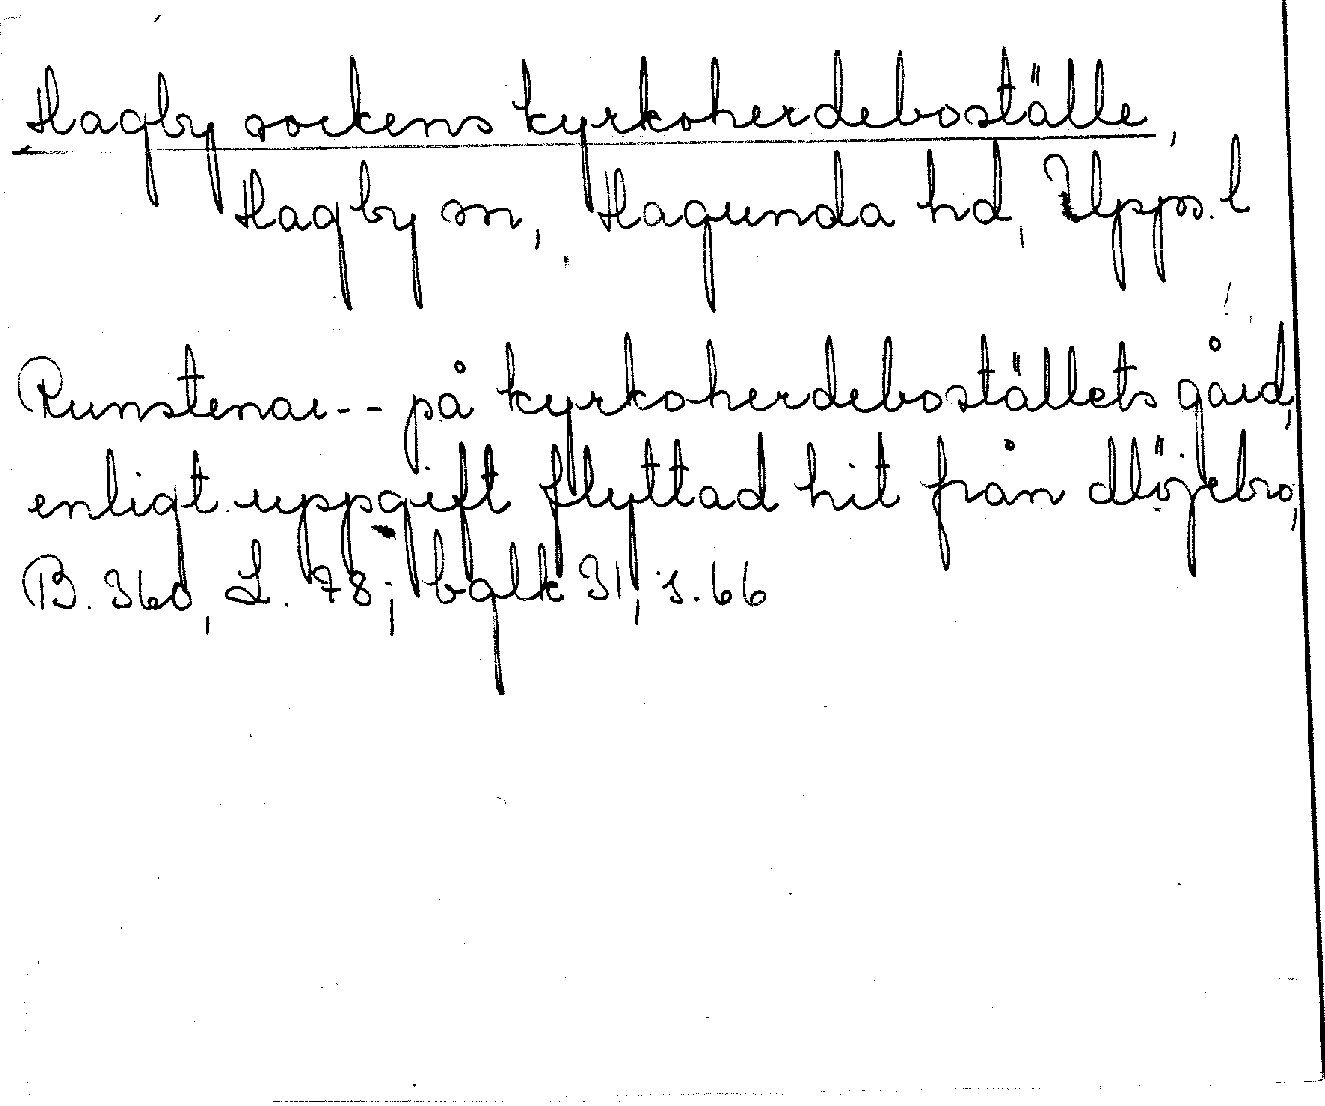 Hagby sockens kyrkoherdeboställe,
Hagby sn, Hagunda hd, Upps. l
Runstenar-- på kyrkoherdeboställets gård,
enligt uppgift flyttad hit från Möjebro,
B. 360, L. 78; balk 31, s. 66